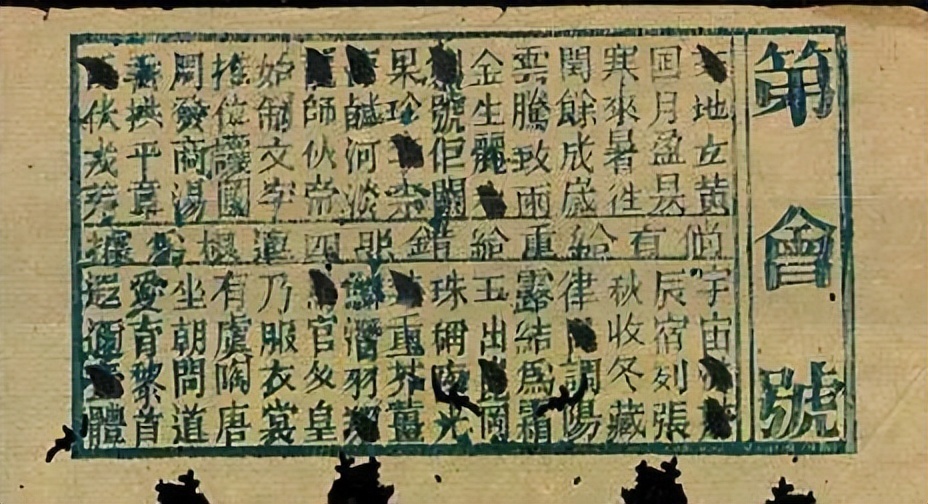 第會號
地玄黃
月盈昃
寒來暑往
閏餘成歲
雲騰致雨
金生麗
果珍柰
號佢闕
鹹河淡
師伙帝
始制文字
推位讓國
周發商湯
拱平章
伏戎羌
有給重給銷照四根為據
宇宙
辰宿列張
秋收冬藏
律調陽
露結為霜
玉出岡
珠稱夜光
重芥薑
鱗潛羽翔
官皇
乃服衣裳
有虞陶唐
坐朝問道
愛育黎首
遐邇體